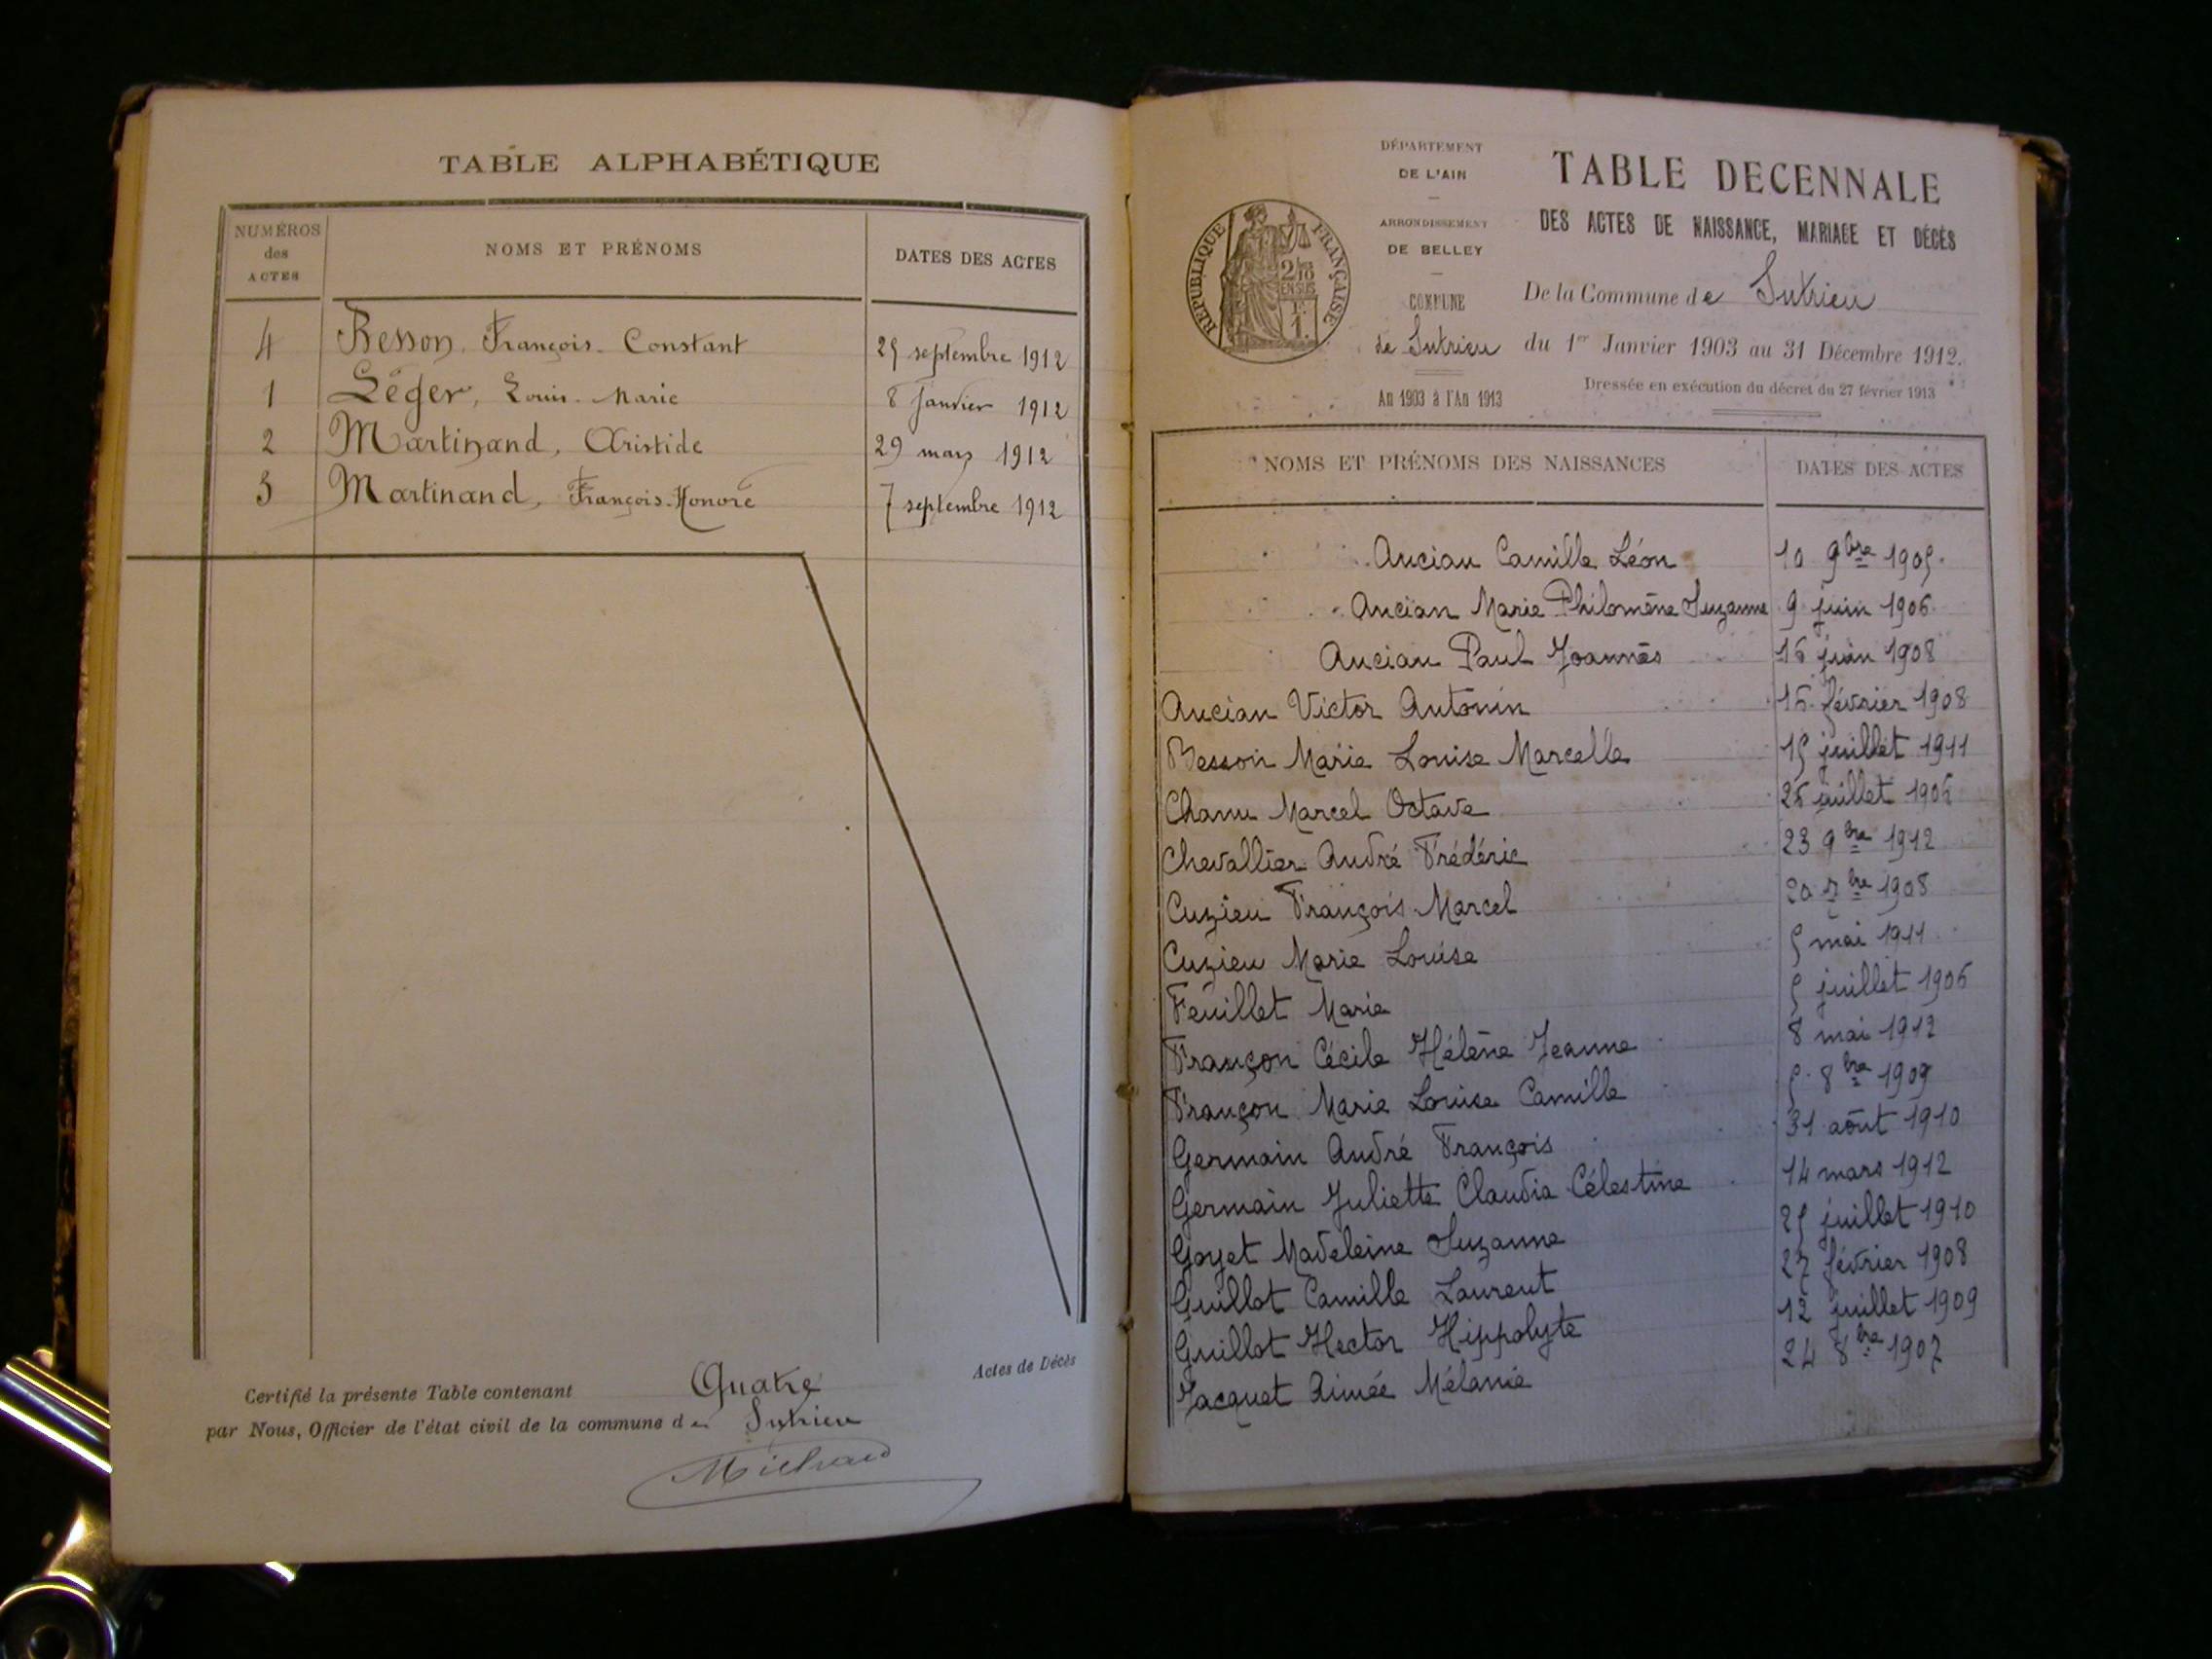 TABLE ALPHABÉTIQUE
NUMÉROS
des
ACTES
NOMS ET PRÉNOMS
DATES DES ACTES
4 Besson, François-Constant 25 septembre 1912
1 Léger, Louis-Marie 8 Janvier 1912
2 Martinand, Aristide 29 mars 1912
3 Martinand, François-Honoré 7 septembre 1912
Certifié la présente Table contenant Quatre Actes de Décès
par Nous, Officier de l'état civil de la commune de Sutrieu
DÉPARTEMENT
DE L'AIN
ARRONDISSEMENT
DE BELLEY
COMMUNE
de Sutrieu
An 1903 à l'An 1913
RÉPUBLIQUE FRANÇAISE
2/10
EN SUS
1F.
TABLE DECENNALE
DES ACTES DE NAISSANCE, MARIAGE ET DÉCÈS
De la Commune de Sutrieu
du 1er Janvier 1903 au 31 Décembre 1912.
Dressée en exécution du décret du 27 février 1913
NOMS ET PRÉNOMS DES NAISSANCES
DATES DES ACTES
Ancian Camille Léon 10 9bre 1905
Ancian Marie Philomène Suzanne 9 juin 1906
Ancian Paul Joannès 16 juin 1908
Ancian Victor Antonin 16 février 1908
Besson Marie Louise Marcelle 15 juillet 1911
Chanu Marcel Octave 26 juillet 1906
Chevallier André Frédéric 23 9bre 1912
Cuzieu François Marcel 20 7bre 1908
Cuzieu Marie Louise 5 mai 1911
Feuillet Marie 5 juillet 1906
Françon Cécile Hélène Jeanne 8 mai 1912
Françon Marie Louise Camille 5 8bre 1909
Germain André François 31 août 1910
Germain Juliette Claudia Célestine 14 mars 1912
Goyet Madeleine Suzanne 25 juillet 1910
Guillot Camille Laurent 27 février 1908
Guillot Hector Hippolyte 12 juillet 1909
Jacquet Aimée Mélanie 24 8bre 1907